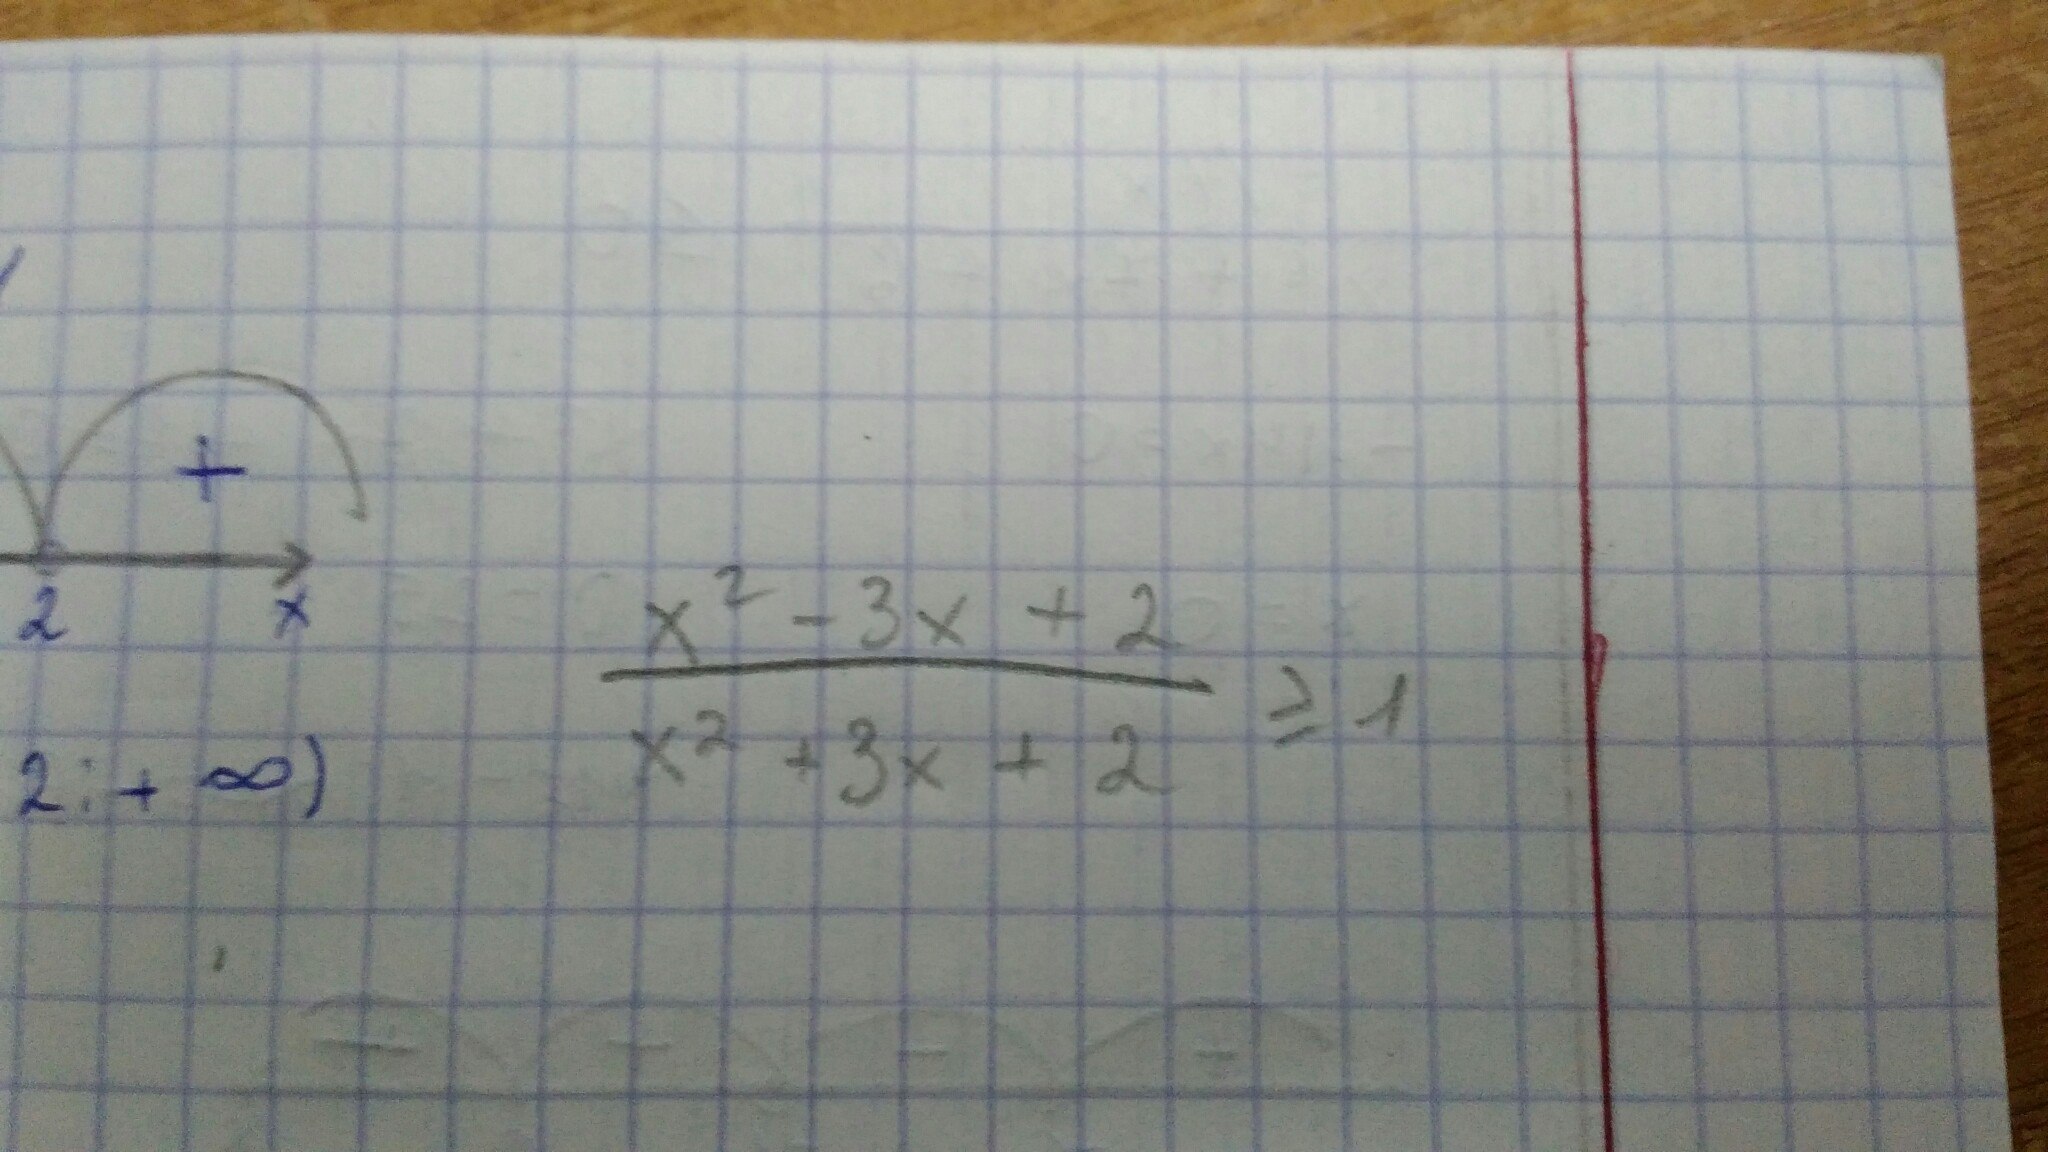 +
2 x
x² - 3x + 2
x² + 3x + 2 ≥ 1
2; + ∞)